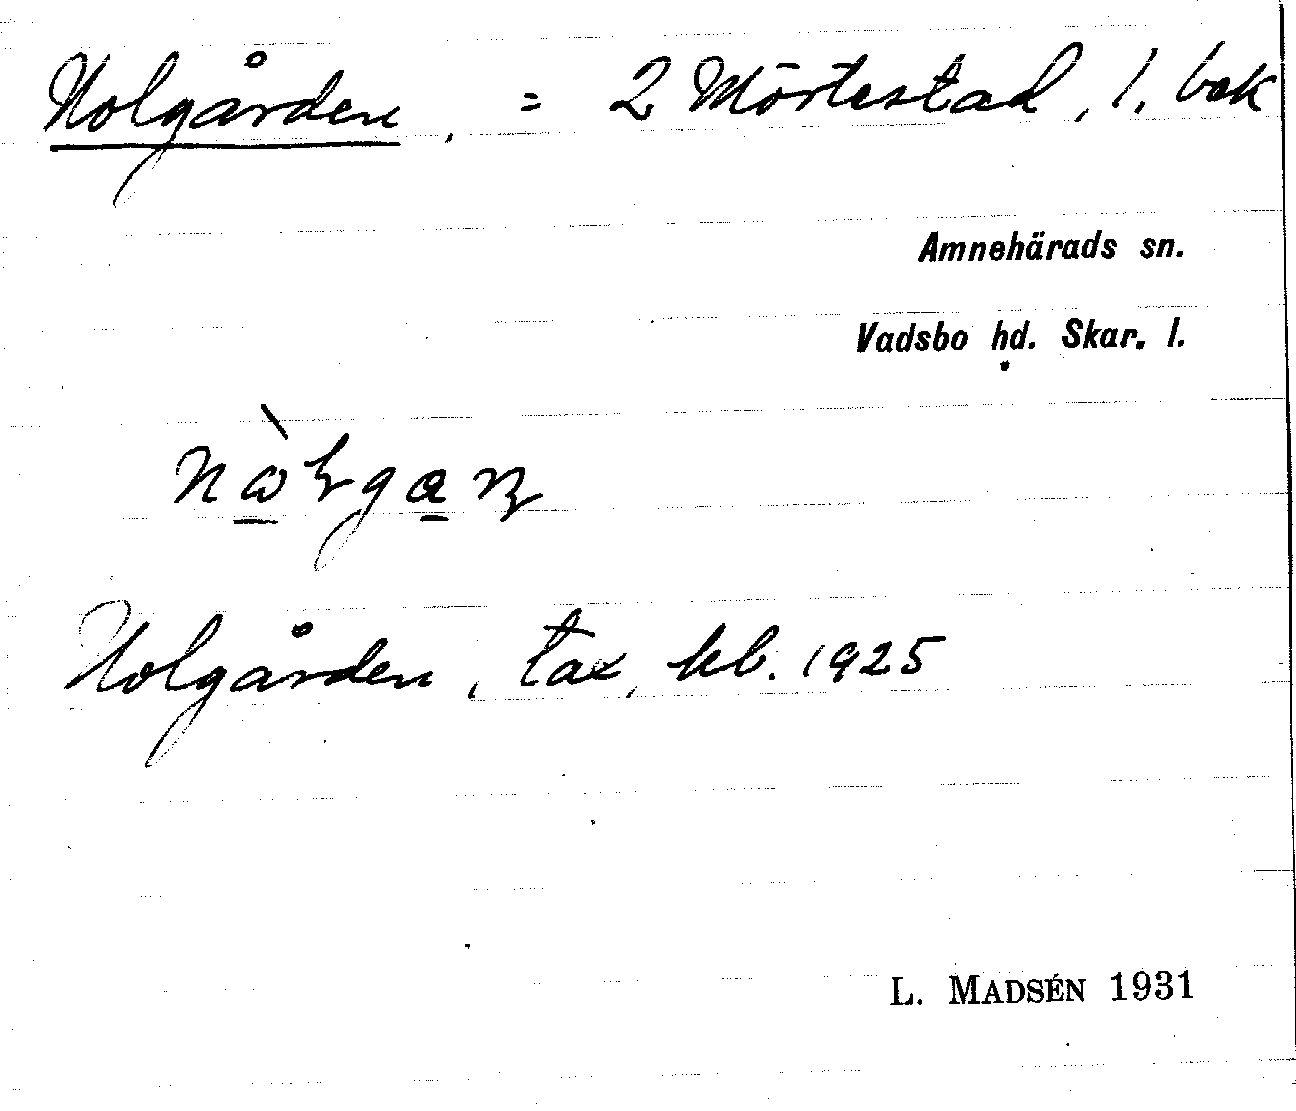 Nolgården, = 2 Mörtestad, 1. bok
Amnehärads sn.
Vadsbo hd. Skar. l.
Nolgården, tax. kb. 1925
L. MADSÉN 1931